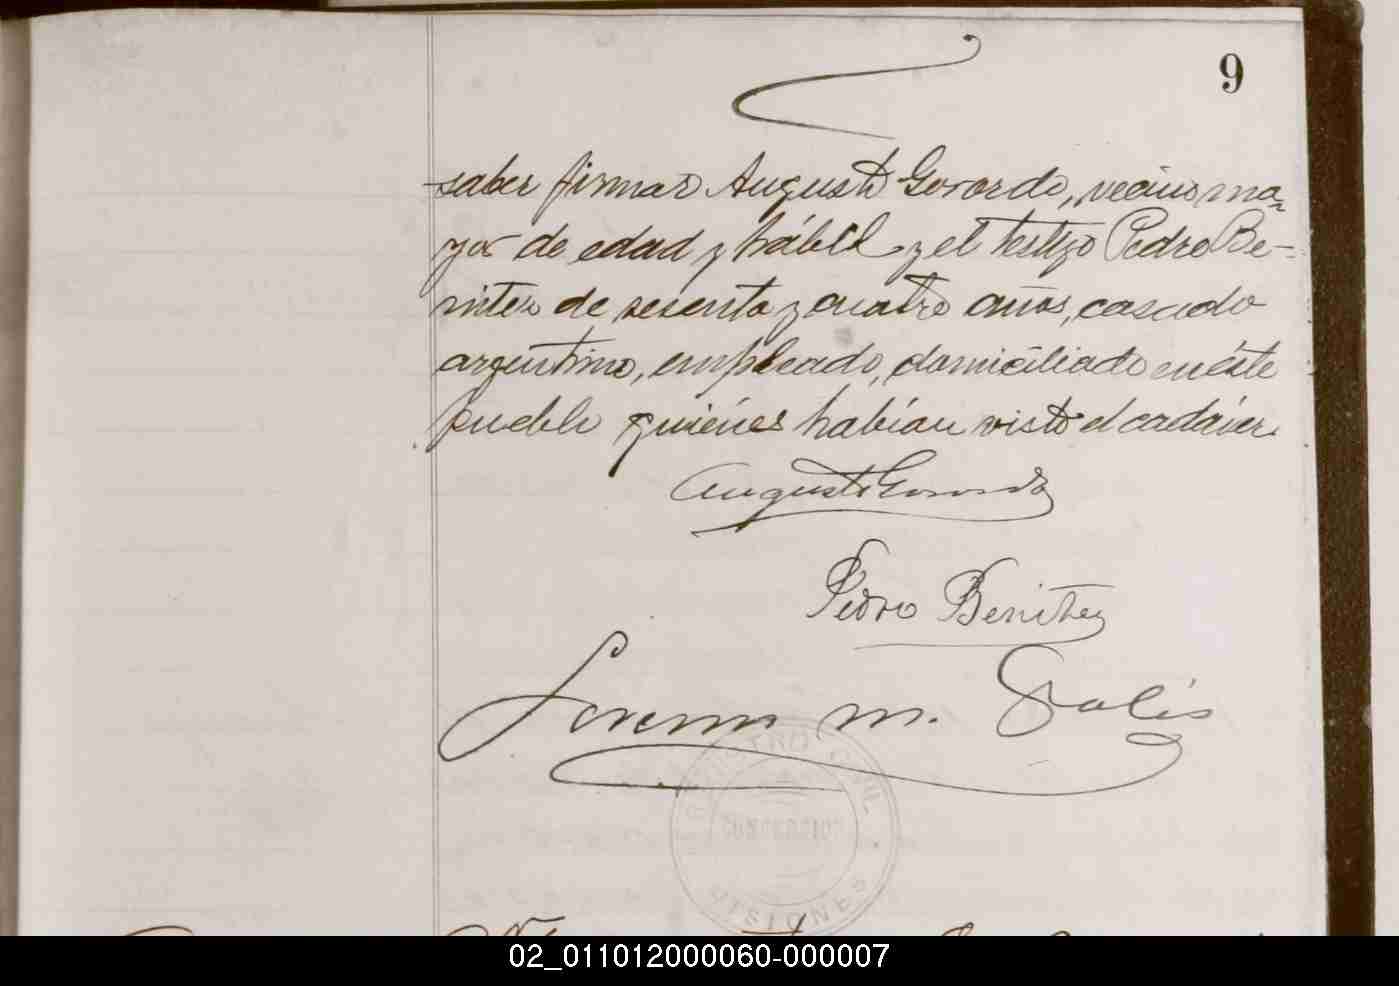 9
saber firmar Augusto Gorordo, vecino ma-
yor de edad y hábil y el testigo Pedro Be-
nitez de sesenta y cuatro años, casado
argentino, empleado, domiciliado en éste
pueblo quiénes habían visto el cadáver.
Augusto Gorordo
Pedro Benitez
m. Solis
REGISTRO CIVIL
CONCEPCION
MISIONES
02_011012000060-000007